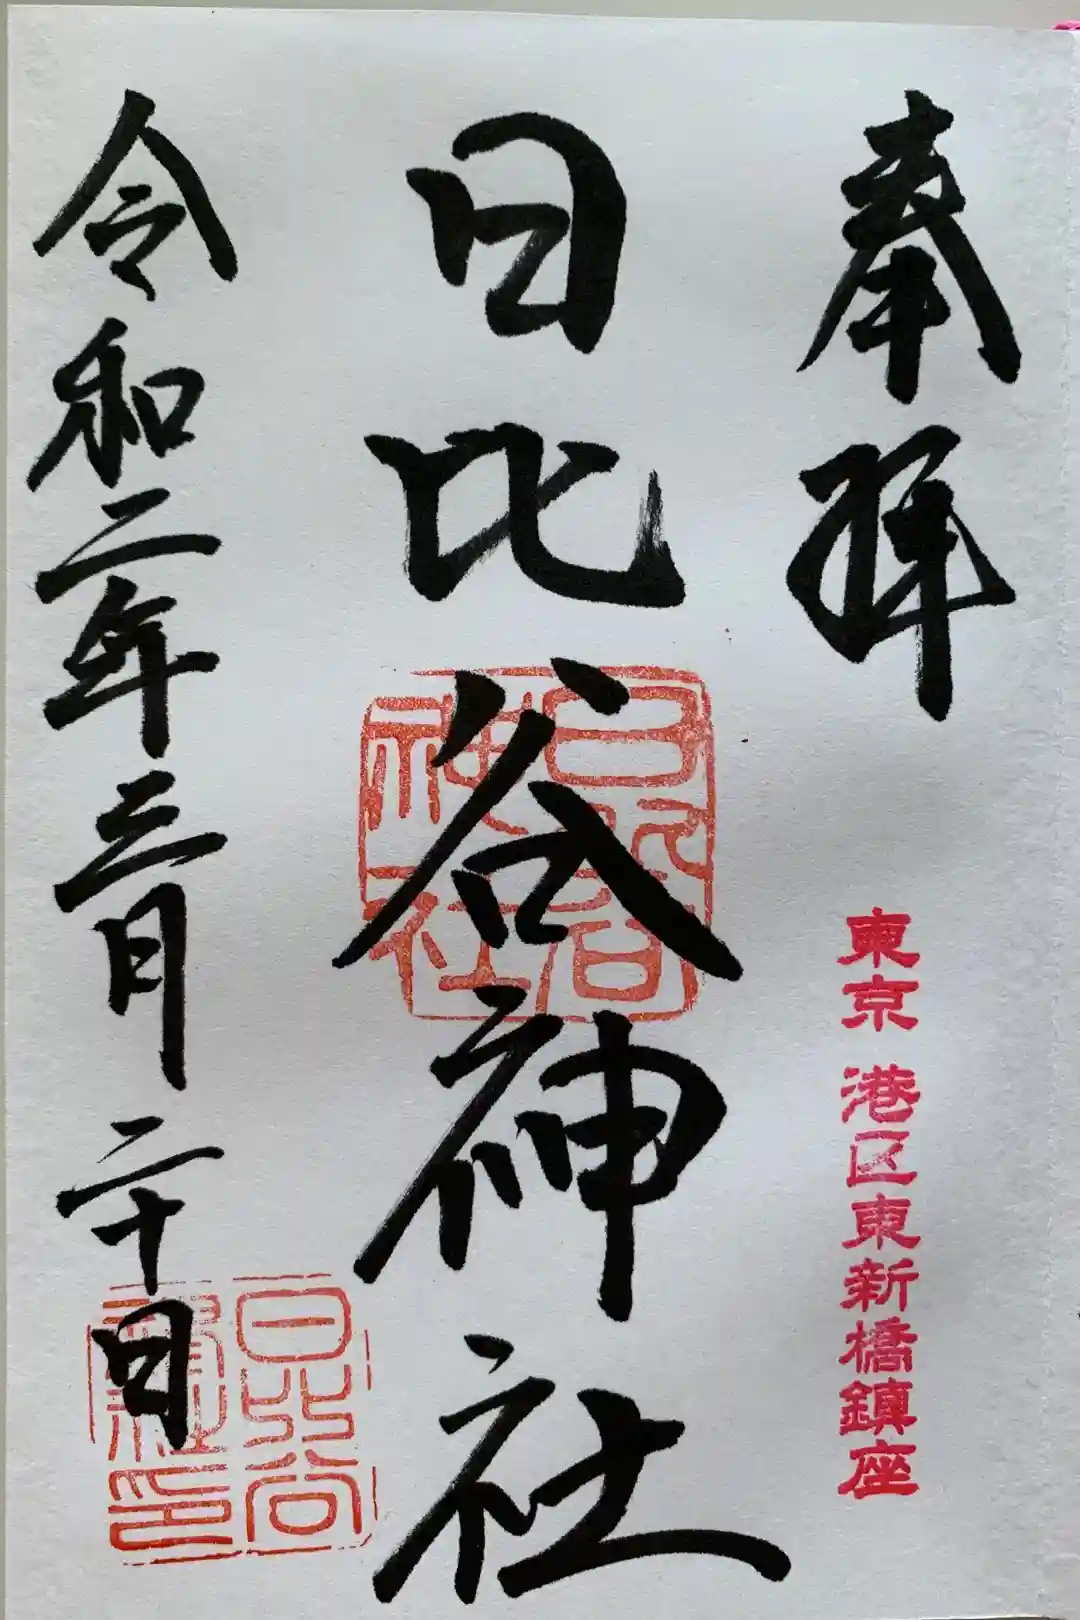 奉拝
東京 港区東新橋鎮座
日比谷神社
日比谷
神社
令和二年三月二十日
日比谷
神社印